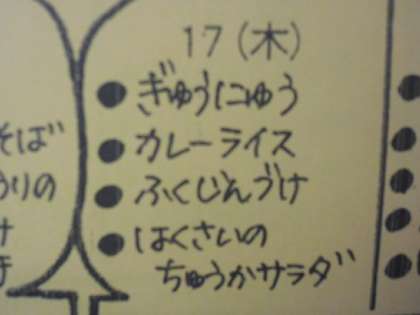 17(木)
●ぎゅうにゅう
●カレーライス
●ふくじんづけ
●はくさいの
ちゅうかサラダ
そば
りの
け